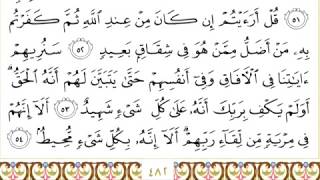 ٥١ قُلْ أَرَءَيْتُمْ إِن كَانَ مِنْ عِندِ ٱللَّهِ ثُمَّ كَفَرْتُم
بِهِۦ مَنْ أَضَلُّ مِمَّنْ هُوَ فِى شِقَاقٍۭ بَعِيدٍ ٥٢ سَنُرِيهِمْ
ءَايَٰتِنَا فِى ٱلْءَافَاقِ وَفِىٓ أَنفُسِهِمْ حَتَّىٰ يَتَبَيَّنَ لَهُمْ أَنَّهُ ٱلْحَقُّ ۗ
أَوَلَمْ يَكْفِ بِرَبِّكَ أَنَّهُۥ عَلَىٰ كُلِّ شَىْءٍ شَهِيدٌ ٥٣ أَلَآ إِنَّهُمْ
فِى مِرْيَةٍ مِّن لِّقَآءِ رَبِّهِمْ ۗ أَلَآ إِنَّهُۥ بِكُلِّ شَىْءٍ مُّحِيطٌۢ ٥٤
٤٨٢